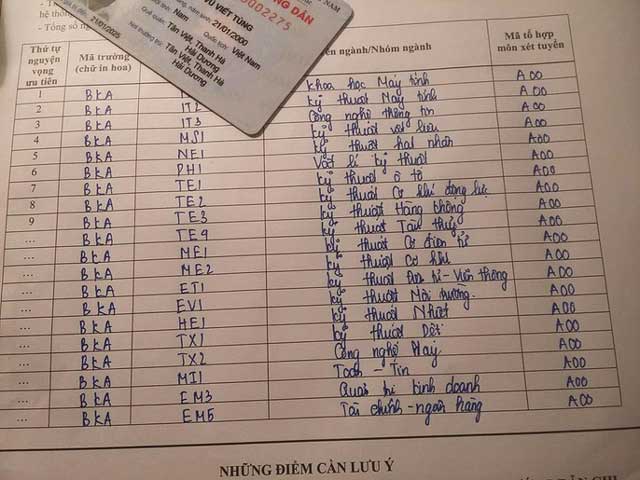 NG DÂN
VIỆT NAM
0002275
VŨ VIẾT TÙNG
21/01/2000
Nam
Quốc tịch: Việt Nam
Quê quán: Tân Việt, Thanh Hà
Hải Dương
Nơi thường trú: Tân Việt, Thanh Hà
Hải Dương
21/01/2025
hệ thống
- Tổng số
Thứ tự nguyện vọng ưu tiên Mã trường (chữ in hoa) ên ngành/Nhóm ngành Mã tổ hợp môn xét tuyển
1 BKA Khoa học Máy tính A00
2 BKA IT2 kỹ thuật Máy tính A00
3 BKA IT3 Công nghệ thông tin A00
4 BKA MS1 kỹ thuật vật liệu A00
5 BKA NE1 kỹ thuật hạt nhân A00
6 BKA PH1 Vật lí kỹ thuật A00
7 BKA TE1 kỹ thuật ô tô A00
8 BKA TE2 kỹ thuật Cơ khí động lực A00
9 BKA TE3 kỹ thuật Hàng không A00
... BKA TE4 kỹ thuật Tàu thủy A00
... BKA ME1 kỹ thuật Cơ điện tử A00
... BKA ME2 kỹ thuật Cơ khí A00
... BKA ET1 kỹ thuật Điện tử - Viễn thông A00
... BKA EV1 kỹ thuật Môi trường. A00
... BKA HE1 kỹ thuật Nhiệt A00
... BKA TX1 kỹ thuật Dệt A00
... BKA TX2 Công nghệ May A00
... BKA MI1 Toán - Tin A00
... BKA EM3 Quản trị kinh doanh A00
... BKA EM5 Tài chính - ngân hàng A00
NHỮNG ĐIỂM CẦN LƯU Ý